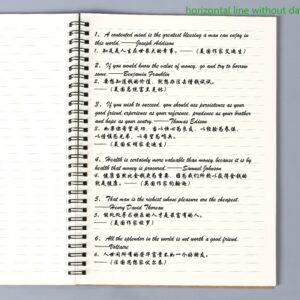 horizontal line without da
1、A contented mind is the greatest blessing a man can enjoy in
this world. —— Joseph Addison
1、知足是人生在世最大的幸事。——（美国作家艾迪生）
2、If you would know the value of money, go and try to borrow
some. —— Benjamin Franklin
2、要想知道钱的价值，就想办法去借钱试试。
——（美国总统富兰克林）
3、If you wish to succeed, you should use persistence as your
good friend, experience as your reference, prudence as your brother
and hope as your sentry. —— Thomas Edison
3、如果你希望成功，当以恒心为良友，以经验为参谋，
以谨慎为兄弟，以希望为哨兵。
——（美国发明家爱迪生）
4、Health is certainly more valuable than money, because it is by
health that money is procured. —— Samuel Johnson
4、健康当然比金钱更为重要，因为我们所赖以获得金钱的
就是健康。——（英国作家约翰逊）
5、That man is the richest whose pleasure are the cheapest.
—— Henry David Thoreau
5、能处处寻求快乐的人才是最富有的人。
——（美国作家梭罗）
6、All the splendor in the world is not worth a good friend.
—— Voltaire
6、人世间所有的荣华富贵不如一个好朋友。
——（法国思想家伏尔泰）